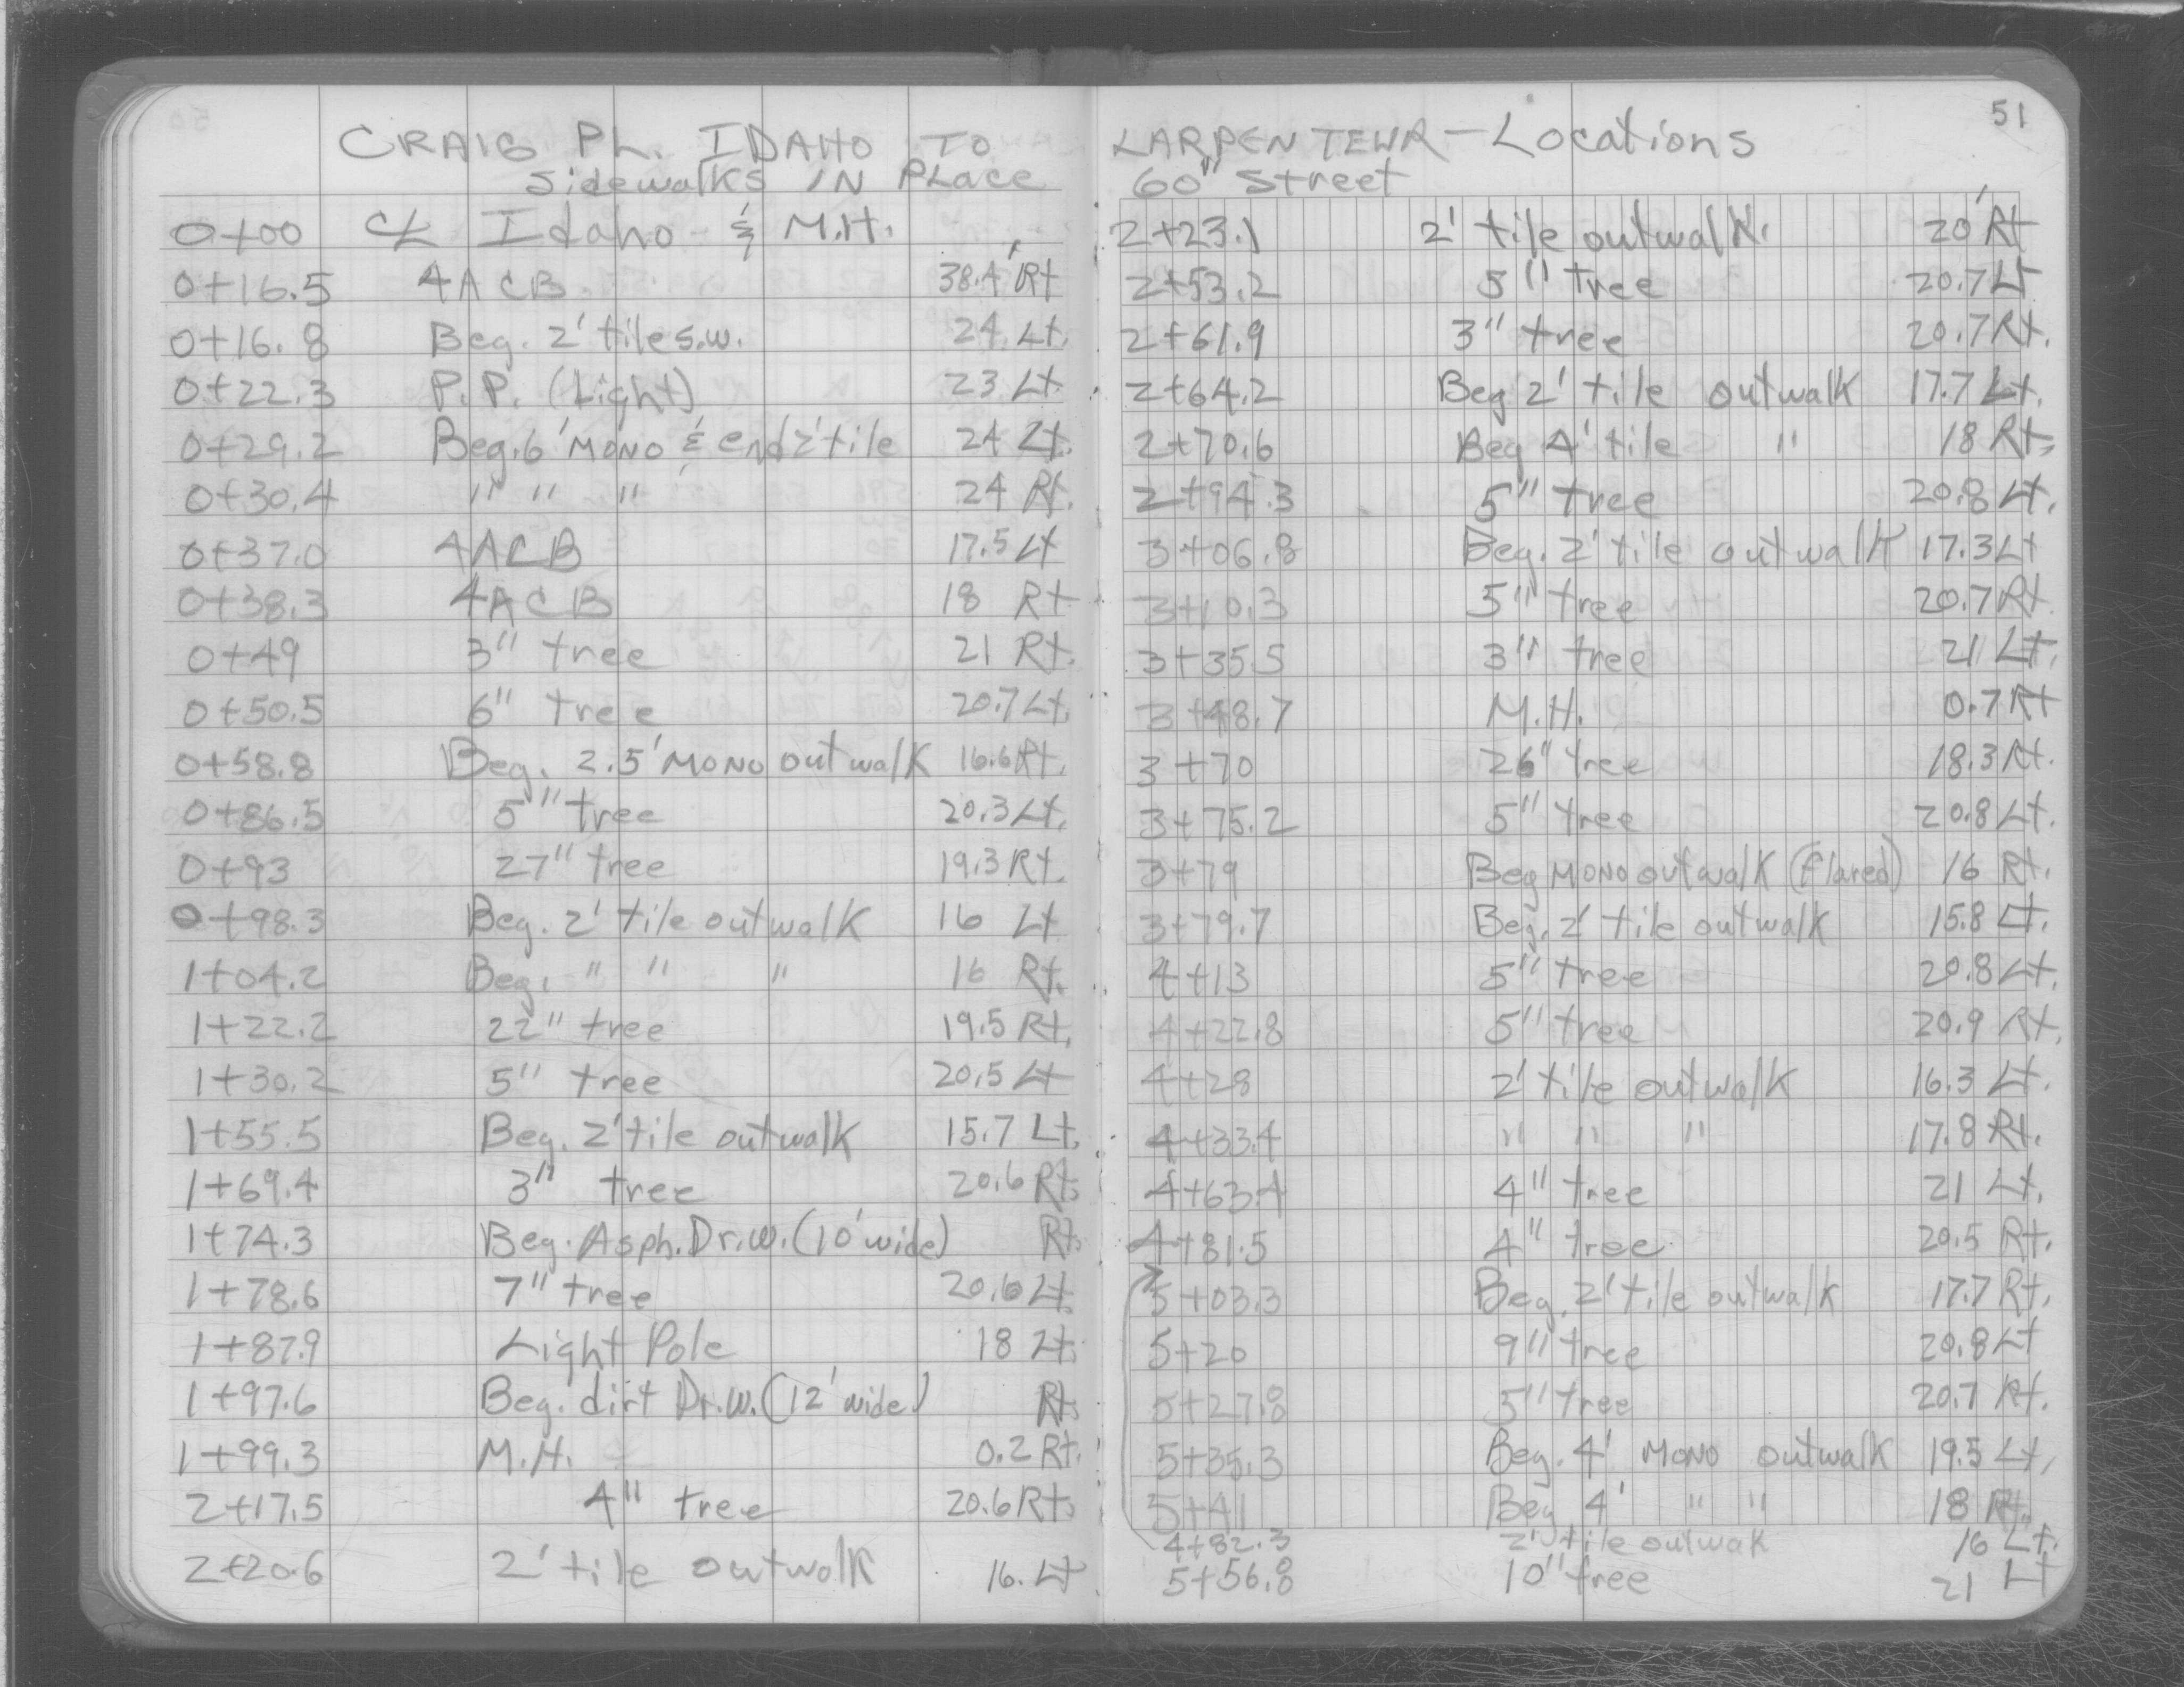 CRAIG PL. IDAHO TO
Sidewalks IN PLace
0+00 C/L Idaho & M.H.
0+16.5 4ACB 38.4' Rt
0+16.8 Beg. 2' tile s.w. 24 Lt.
0+22.3 P.P. (Light) 23 Lt
0+29.2 Beg. 6' MONO & end 2' tile 24 Lt.
0+30.4 " " " 24 Rt.
0+37.0 4ACB 17.5 Lt
0+38.3 4ACB 18 Rt
0+49 3" tree 21 Rt.
0+50.5 6" tree 20.7 Lt.
0+58.8 Beg. 2.5' MONO outwalk 16.6 Rt.
0+86.5 5" tree 20.3 Lt.
0+93 27" tree 19.3 Rt.
0+98.3 Beg. 2' tile outwalk 16 Lt
1+04.2 Beg. " " " 16 Rt.
1+22.2 22" tree 19.5 Rt.
1+30.2 5" tree 20.5 Lt
1+55.5 Beg. 2' tile outwalk 15.7 Lt.
1+69.4 3" tree 20.6 Rt.
1+74.3 Beg. Asph. Dr.w. (10' wide) Rt.
1+78.6 7" tree 20.6 Lt
1+87.9 Light Pole 18 Lt.
1+97.6 Beg. dirt Dr.w. (12' wide) Rt.
1+99.3 M.H. 0.2 Rt.
2+17.5 4" tree 20.6 Rt.
2+20.6 2' tile outwalk 16. Lt
51
LARPENTEUR - Locations
60" Street
2+23.1 2' tile outwalk. 20' Rt
2+53.2 5" tree 20.7 Lt
2+61.9 3" tree 20.7 Rt.
2+64.2 Beg 2' tile outwalk 17.7 Lt.
2+70.6 Beg 4' tile " 18 Rt.
2+94.3 5" tree 20.8 Lt.
3+06.8 Beg. 2' tile outwalk 17.3 Lt
3+10.3 5" tree 20.7 Rt.
3+35.5 3" tree 21 Lt.
3+48.7 M.H. 0.7 Rt
3+70 26" tree 18.3 Rt.
3+75.2 5" tree 20.8 Lt.
3+79 Beg MONO outwalk (Flared) 16 Rt.
3+79.7 Beg. 2' tile outwalk 15.8 Lt.
4+13 5" tree 20.8 Lt.
4+22.8 5" tree 20.9 Rt.
4+28 2' tile outwalk 16.3 Lt.
4+33.4 " " " 17.8 Rt.
4+63.4 4" tree 21 Lt.
4+81.5 4" tree 20.5 Rt.
5+03.3 Beg. 2' tile outwalk 17.7 Rt.
5+20 9" tree 20.8 Lt
5+27.8 5" tree 20.7 Rt.
5+35.3 Beg. 4' MONO outwalk 19.5 Lt.
5+41 Beg 4' " " 18 Rt.
4+82.3 2' tile outwak 16 Lt.
5+56.8 10" tree 21 Lt